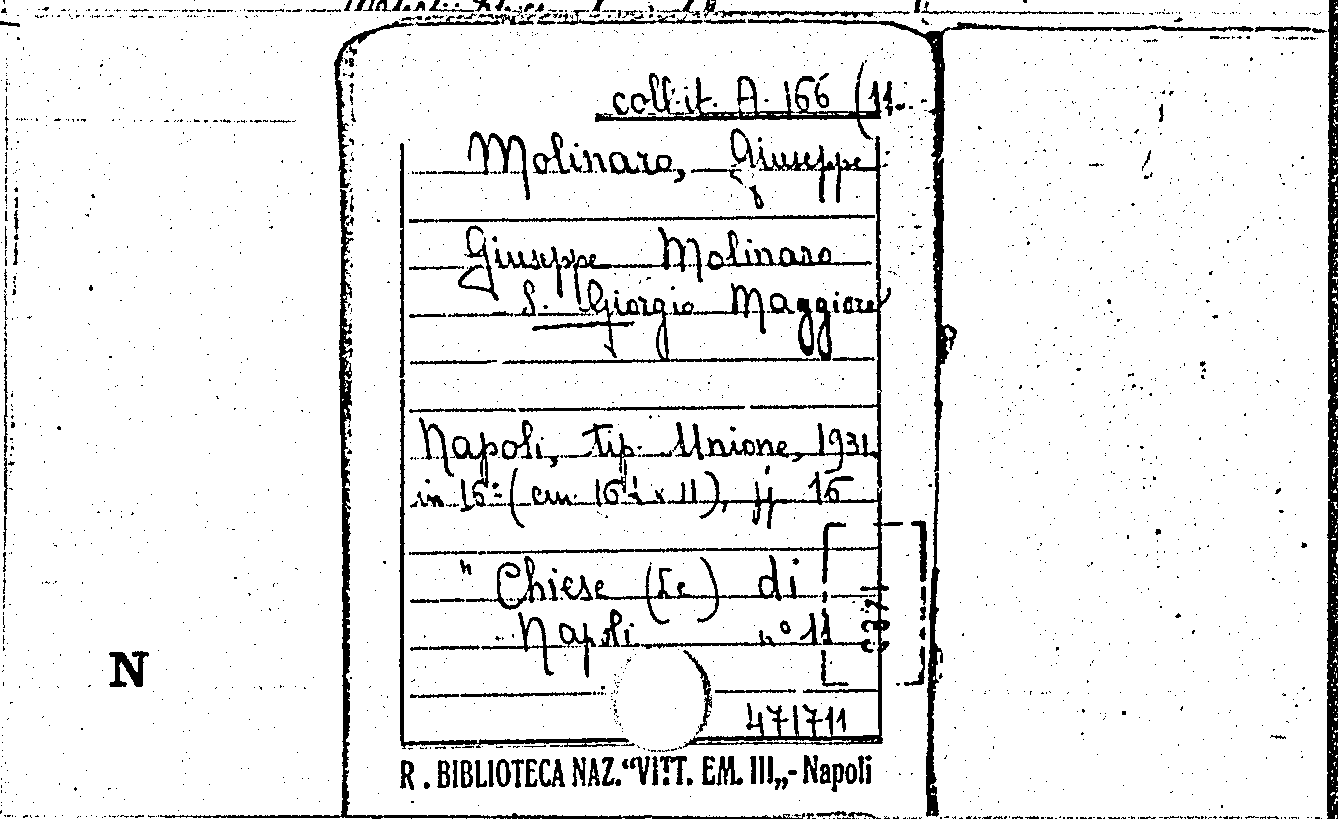 coll. it. A. 166 (11.
Molinaro, Giuseppe
Giuseppe Molinaro
S. Giorgio Maggiore
Napoli, tip. Unione, 1931.
in 16° (cm. 16½ x 11), pp. 16
"Chiese (Le) di
Napoli n° 11
471711
R. BIBLIOTECA NAZ. “VITT. EM. III„ - Napoli
N